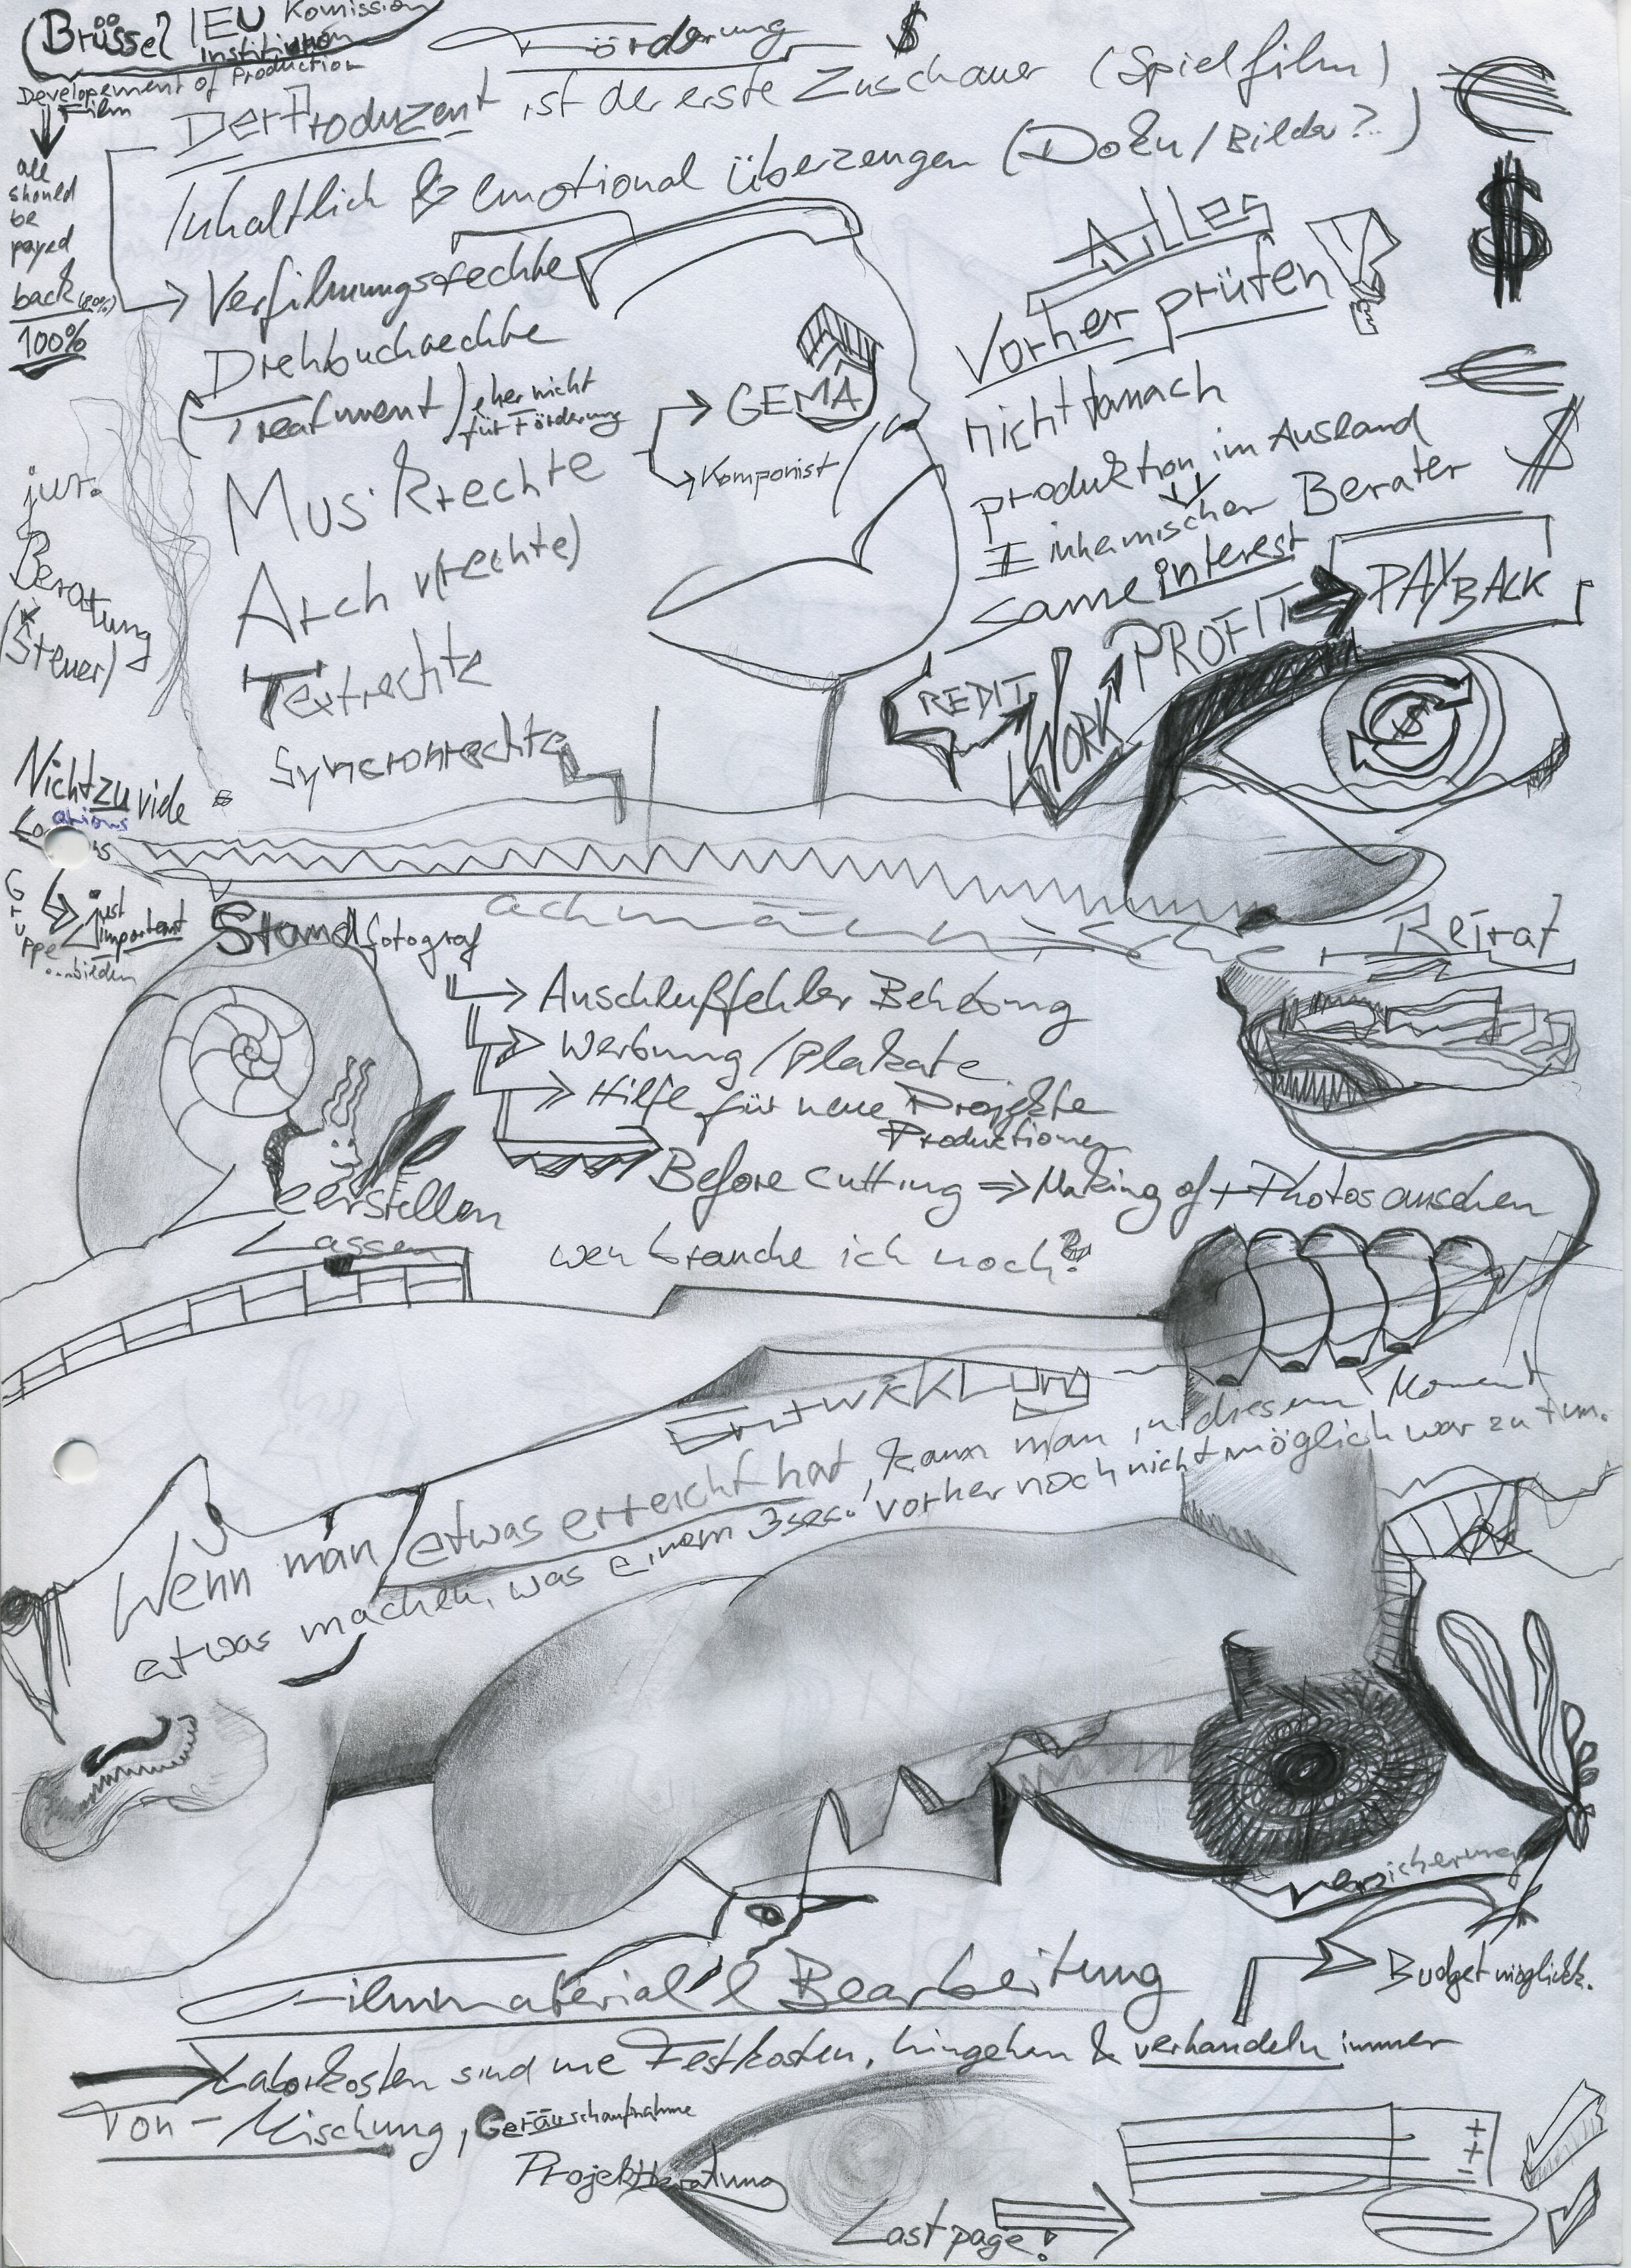 (Brüssel | EU Komission
Institution
Developement of Production
Film
all
should
be
payed
back (80%)
100%
Förderung $
Der Produzent ist der erste Zuschauer (Spielfilm)
Inhaltlich & emotional überzeugen (Doku/Bilder?)
€
$
€
$
Verfilmungsrechte
Drehbuchrechte
(Treatment) eher nicht
für Förderung
Musikrechte
GEMA
Komponist
Archiv(rechte)
Textrechte
Syncronrechte
Alles
Vorher prüfen!
nicht danach
produktion im Ausland
Einheimischer Berater
same interest
CREDIT
WORK
PROFIT
PAYBACK
$
jur.
Beratung
(Steuer)
Nicht zu viele
Gruppe
...bilden
just
important
Standfotograf
Beirat
Anschlußfehler Behebung
Werbung/Plakate
Hilfe für neue Projekte
Productionen
Before cutting => Making of + Photos ansehen
Leerstellen
Lassen
wen brauche ich noch?
Entwicklung
Wenn man etwas erreicht hat, kann man in diesem Moment
etwas machen, was einem 3sec. vorher noch nicht möglich war zu tun.
Versicherung
Filmmaterial & Bearbeitung
Budgetmöglichk.
Laborkosten sind nie Festkosten, hingehen & verhandeln immer
Ton-Mischung, Geräuschaufnahme
Projektberatung
Last page!
+
+
-